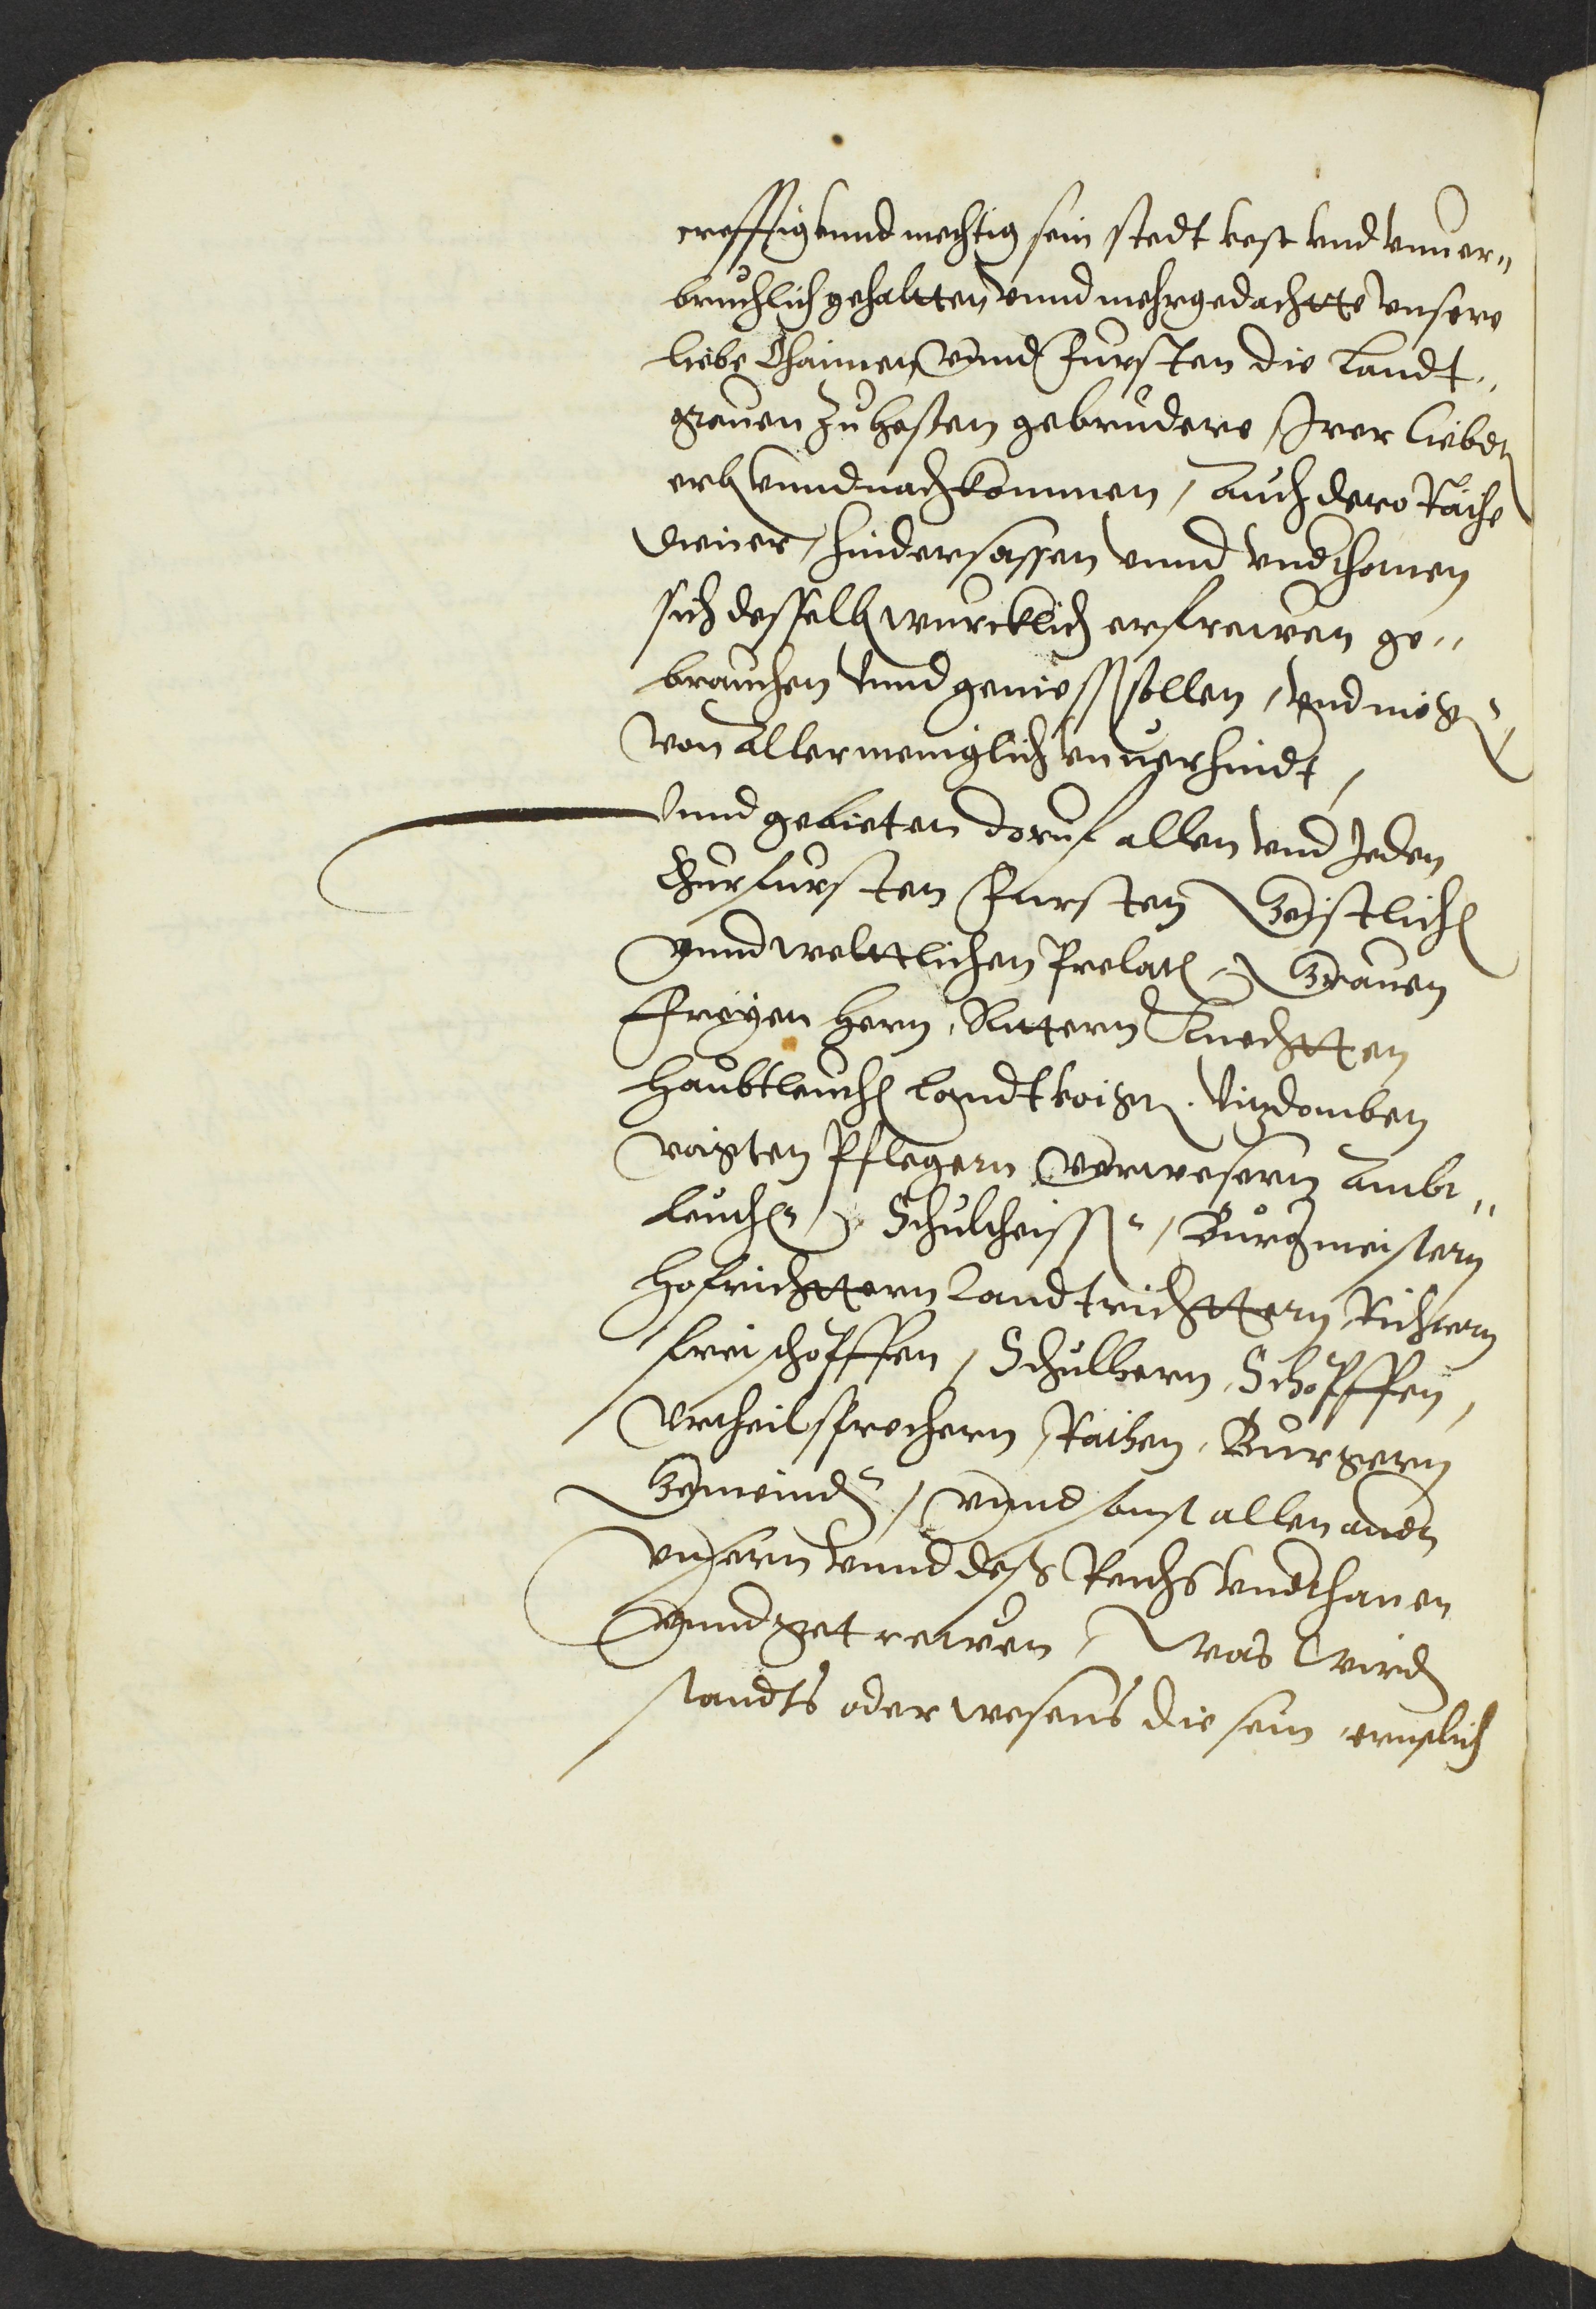 creffftig vnnd mechtig sein stedt vest vnd vnuer„
bruchlich gehaltten, vnnd mehrgedachtte vnsere
liebe Ohaimen vnnd Fursten die Landt„
grauen zu Hessen gebrudere Irer liebdn
erb vnnd nachkommen, auch dero Räthe
Diener, hindersassen vnnd vnderthonen
sich desselb wurcklich erfreiwen ge„
brauchen vnnd geniess sollen, vnd mög
von allermeniglich vnuerhindt,
Vnnd gebieten doruf allen vnd Jeden
Churfursten Fursten Geistlich
vnnd welttlichen Prelat, Grauen
Freyen Hern, Rittern Knechtten
Haubtleuth Landtvoigt, Vitzdomben
voigten Pflegern Verwesern Ambt„
leuthn, Schultheissn, Burgmeistern
Hofrichttern Landtrichttern Richtern
freischöpffen, Schulhern, Schöpffen,
Vrtheilsprechern Räthen, Burgern
Gemeindn, vnnd sonst allen andn
vnsern vnnd dess Reichs vndthanen
vnnd getreiwen, was wird
standts oder wesens die sein, ernstlich